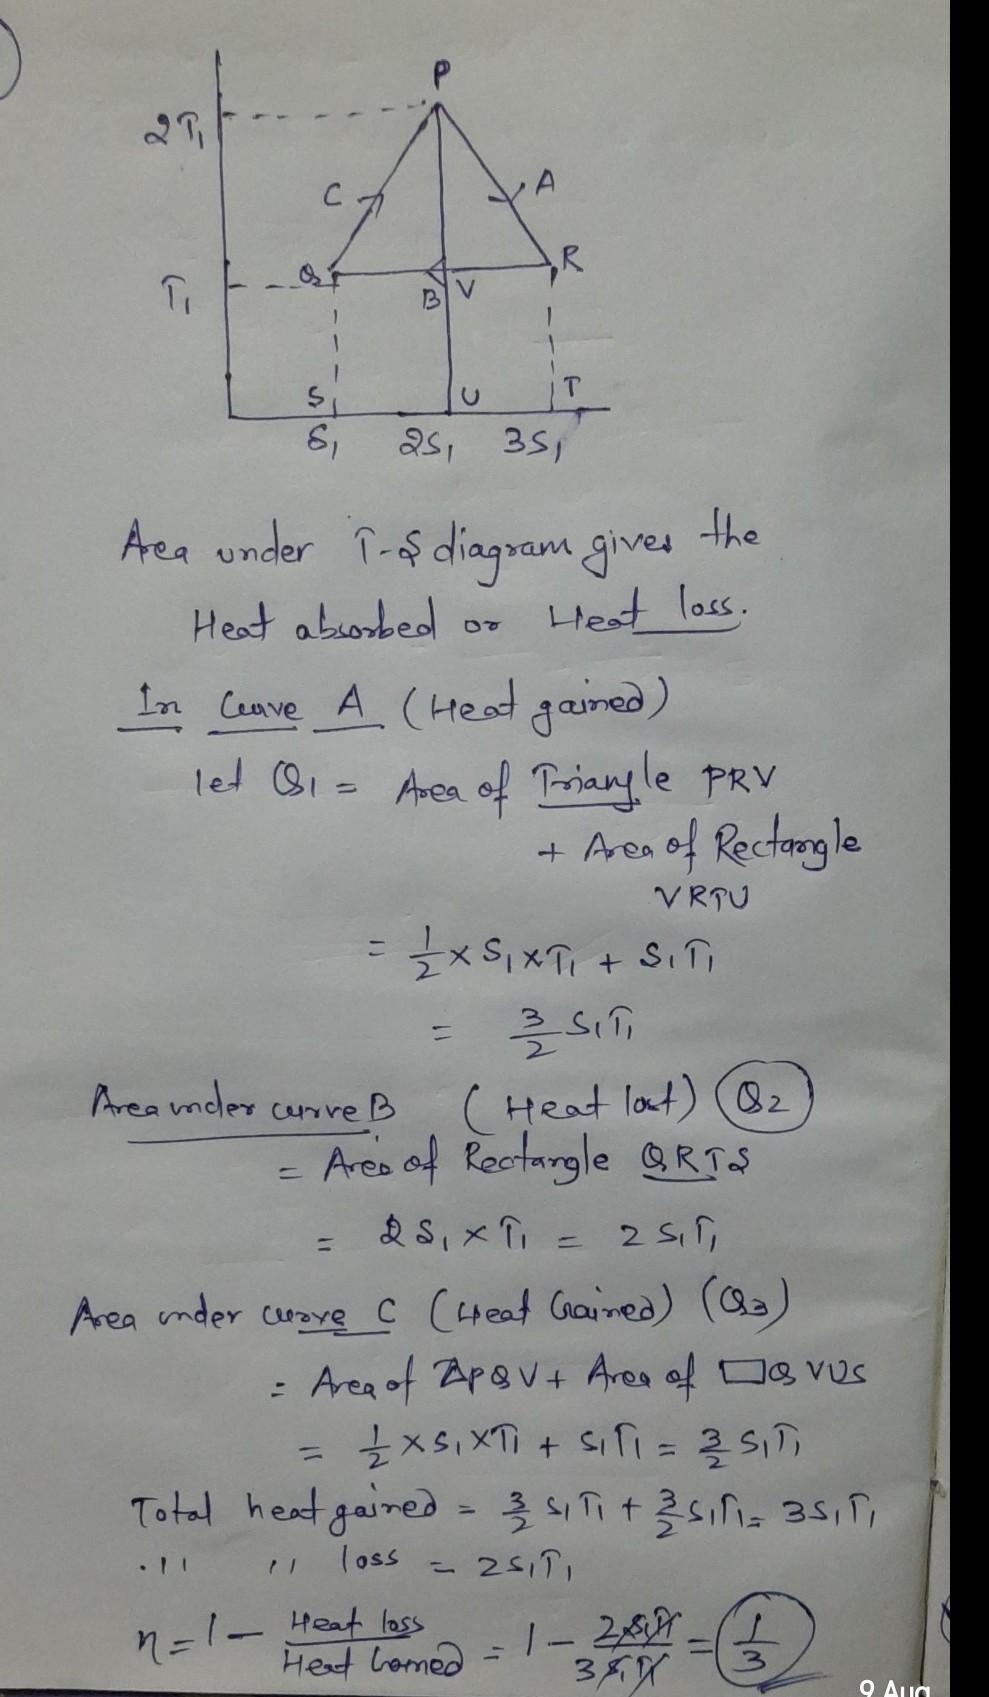 P
2T₁
C
A
Q
R
T₁
B V
S U T
S₁ 2S₁ 3S₁
Area under T-S diagram gives the
Heat absorbed or Heat loss.
In Curve A (Heat gained)
let Q₁ = Area of Triangle PRV
+ Area of Rectangle
VRTU
= 1/2 × S₁ × T₁ + S₁T₁
= 3/2 S₁T₁
Area under curve B (Heat lost) Q2
= Area of Rectangle QRTS
= 2S₁ × T₁ = 2S₁T₁
Area under curve C (Heat Gained) (Q₃)
= Area of ΔPQV + Area of □QVUS
= 1/2 × S₁ × T₁ + S₁T₁ = 3/2 S₁T₁
Total heat gained = 3/2 S₁T₁ + 3/2 S₁T₁ = 3S₁T₁
." " loss = 2S₁T₁
η = 1 - Heat loss/Heat Gained = 1 - 2S₁T₁/3S₁T₁ = 1/3
9 Aug